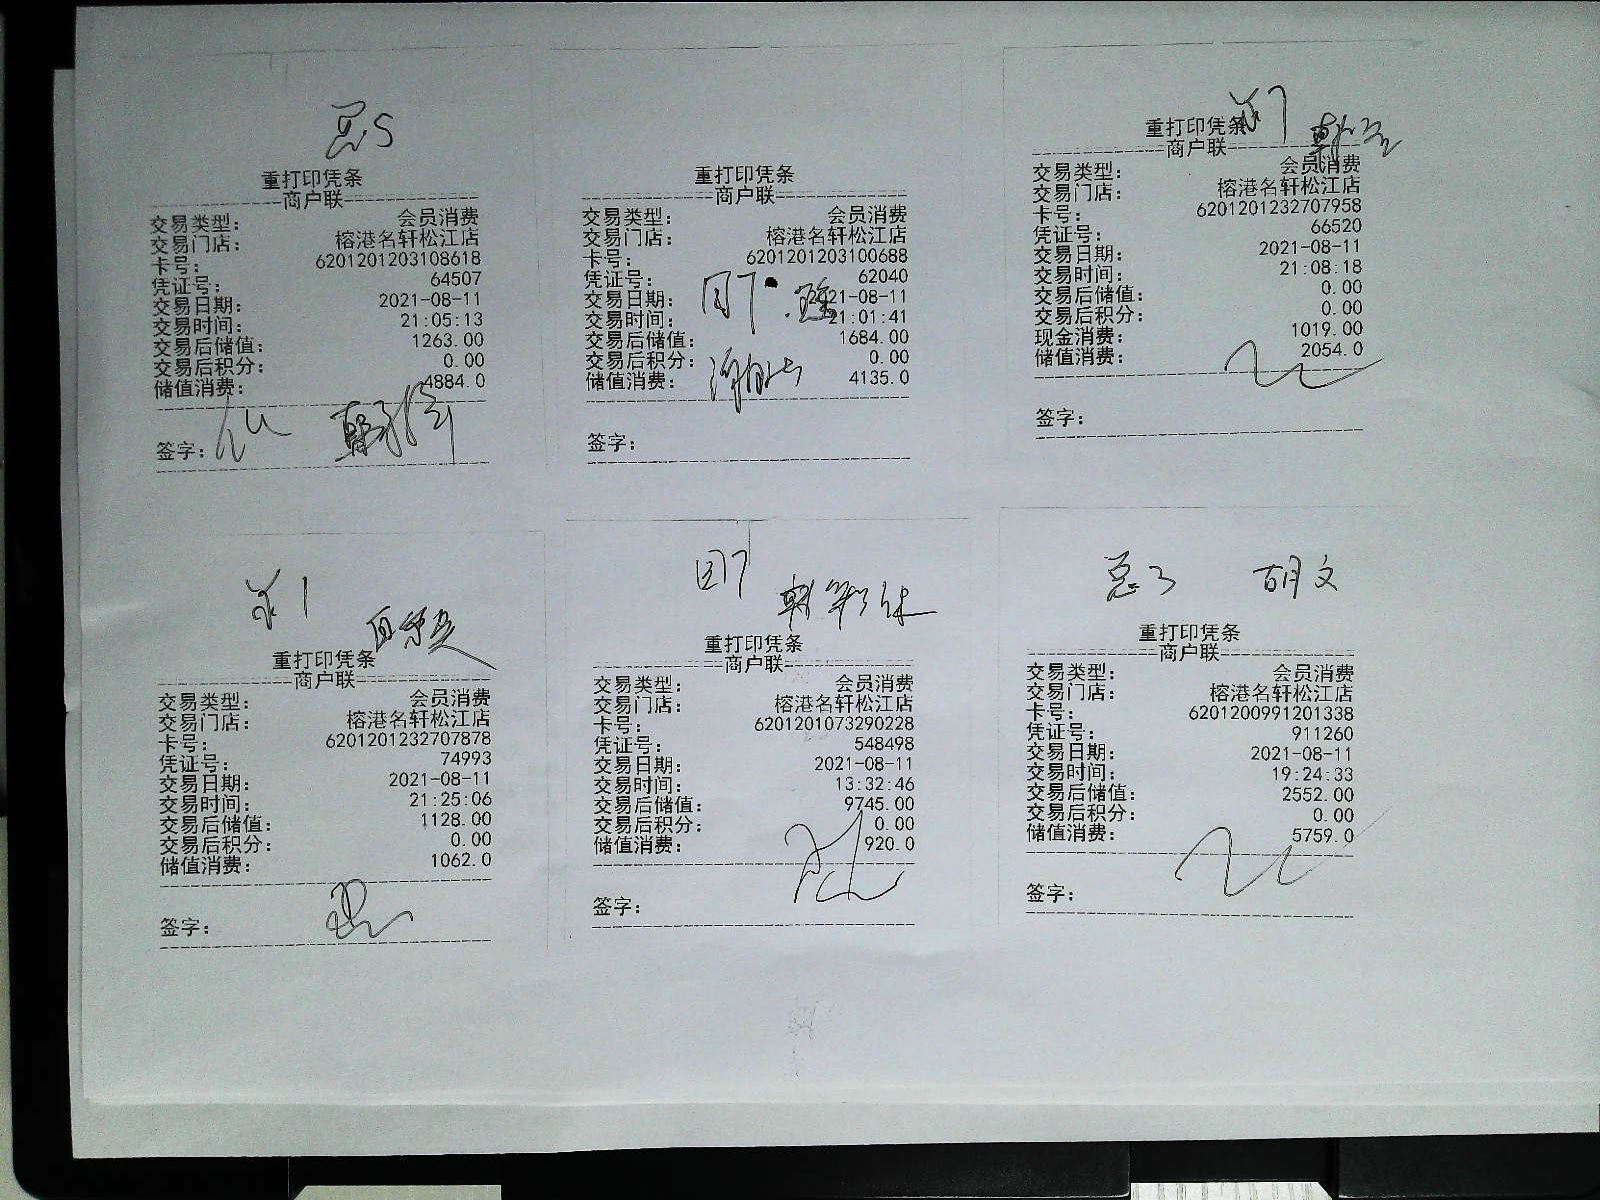 重打印凭条
商户联
交易类型： 会员消费
交易门店： 榕港名轩松江店
卡号： 6201201203108618
凭证号： 64507
交易日期： 2021-08-11
交易时间： 21:05:13
交易后储值： 1263.00
交易后积分： 0.00
储值消费： 4884.0
签字：
重打印凭条
商户联
交易类型： 会员消费
交易门店： 榕港名轩松江店
卡号： 6201201203100688
凭证号： 62040
交易日期： 2021-08-11
交易时间： 21:01:41
交易后储值： 1684.00
交易后积分： 0.00
储值消费： 4135.0
签字：
重打印凭条
商户联
交易类型： 会员消费
交易门店： 榕港名轩松江店
卡号： 6201201232707958
凭证号： 66520
交易日期： 2021-08-11
交易时间： 21:08:18
交易后储值： 0.00
交易后积分： 0.00
现金消费： 1019.00
储值消费： 2054.0
签字：
重打印凭条
商户联
交易类型： 会员消费
交易门店： 榕港名轩松江店
卡号： 6201201232707878
凭证号： 74993
交易日期： 2021-08-11
交易时间： 21:25:06
交易后储值： 1128.00
交易后积分： 0.00
储值消费： 1062.0
签字：
重打印凭条
商户联
交易类型： 会员消费
交易门店： 榕港名轩松江店
卡号： 6201201073290228
凭证号： 548498
交易日期： 2021-08-11
交易时间： 13:32:46
交易后储值： 9745.00
交易后积分： 0.00
储值消费： 920.0
签字：
胡文
重打印凭条
商户联
交易类型： 会员消费
交易门店： 榕港名轩松江店
卡号： 6201200991201338
凭证号： 911260
交易日期： 2021-08-11
交易时间： 19:24:33
交易后储值： 2552.00
交易后积分： 0.00
储值消费： 5759.0
签字：